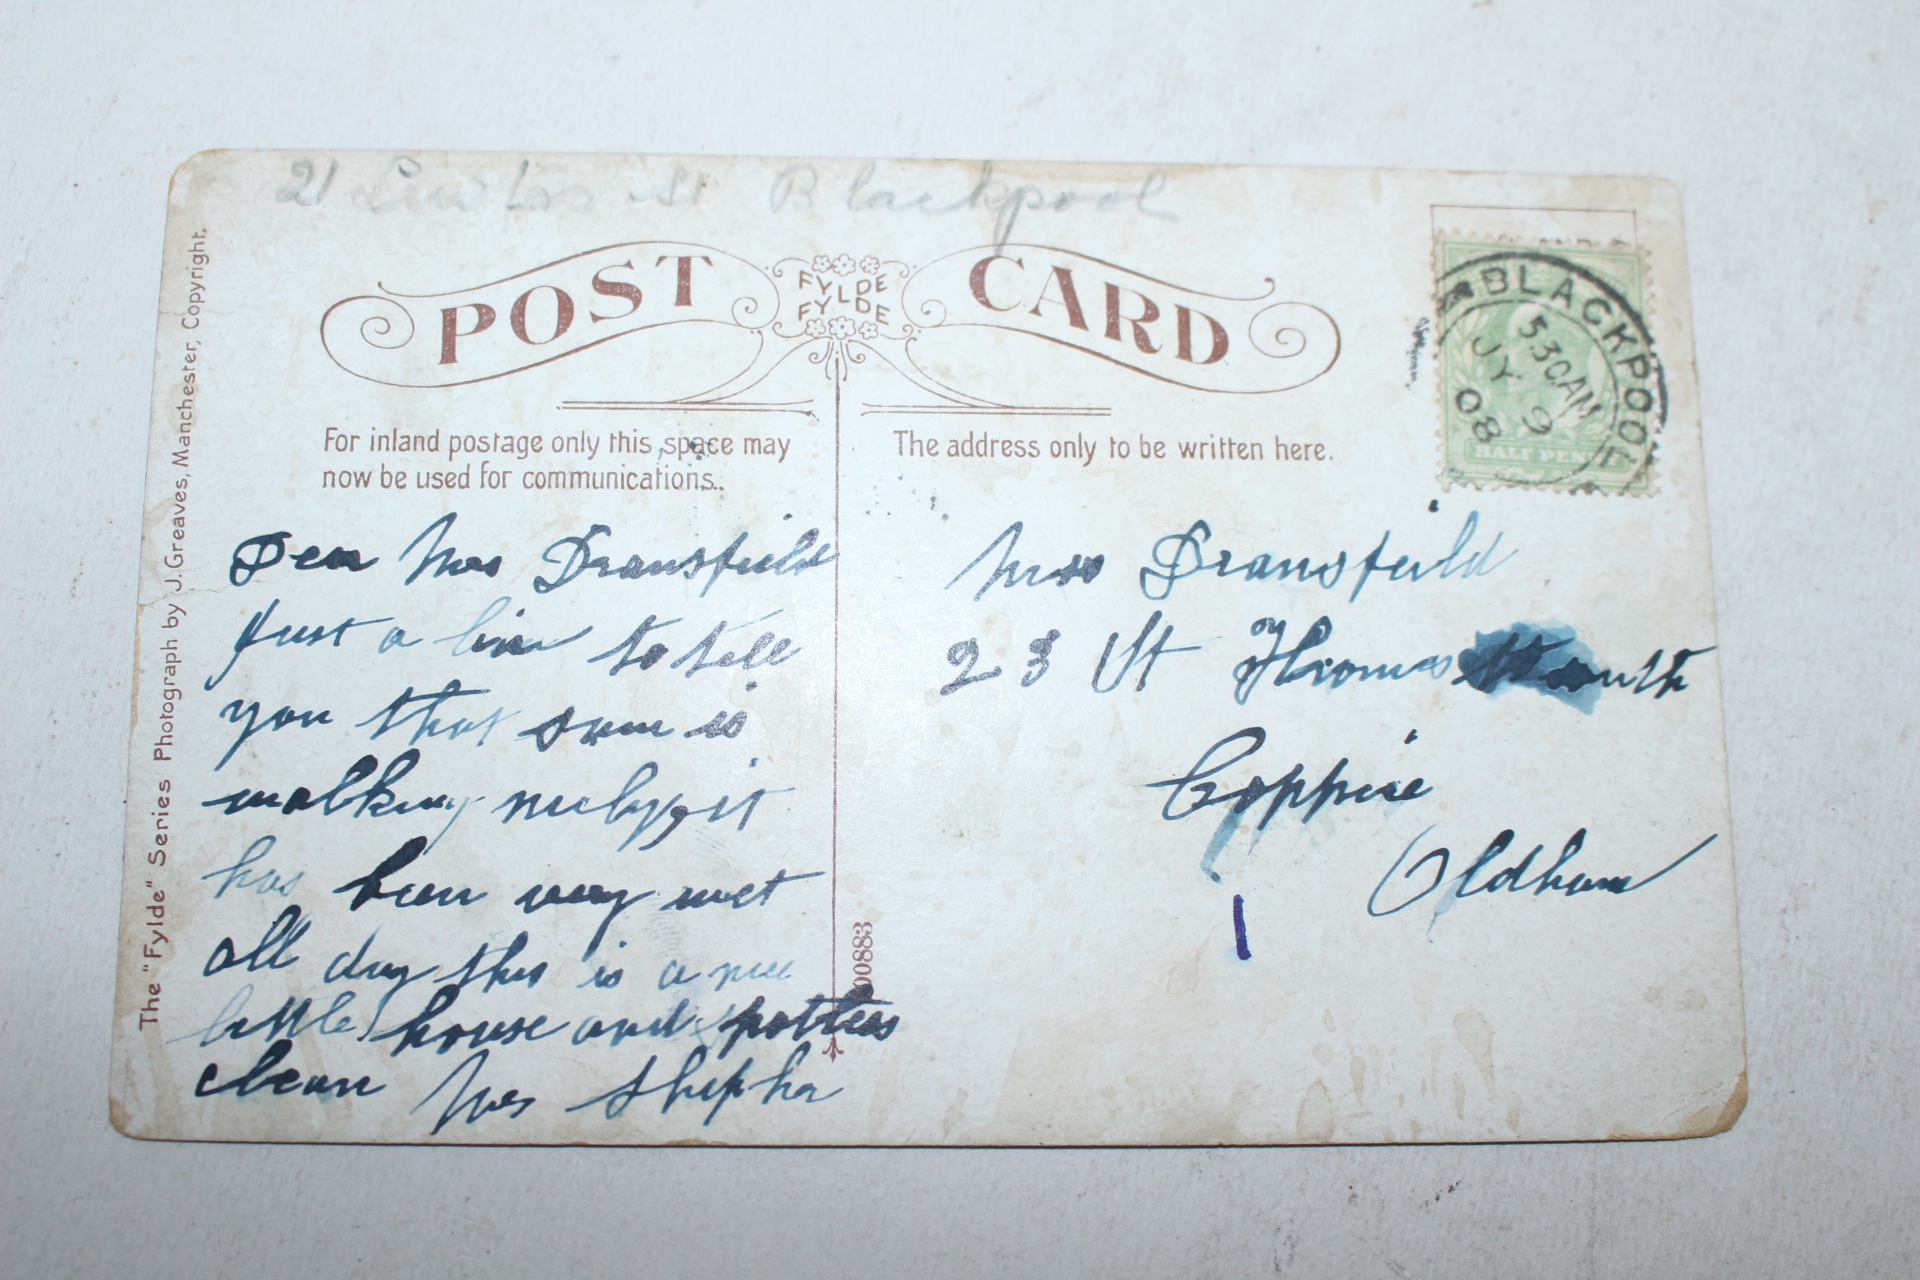 21 St Blackpool
POST CARD
FYLDE
FYLDE
For inland postage only this space may
now be used for communications.
The address only to be written here.
BLACKPOOL
5 30 AM
JY 9
08
HALF PENNY
Dear Mrs Dransfield
Just a line to tell
you that sam is
walking nicly, it
has been very wet
all day this is a nice
little house and spottless
clean Mrs
Mrs Dransfield
23 St Thomas North
Coppice
Oldham
The "Fylde" Series Photograph by J. Greaves, Manchester, Copyright.
00883